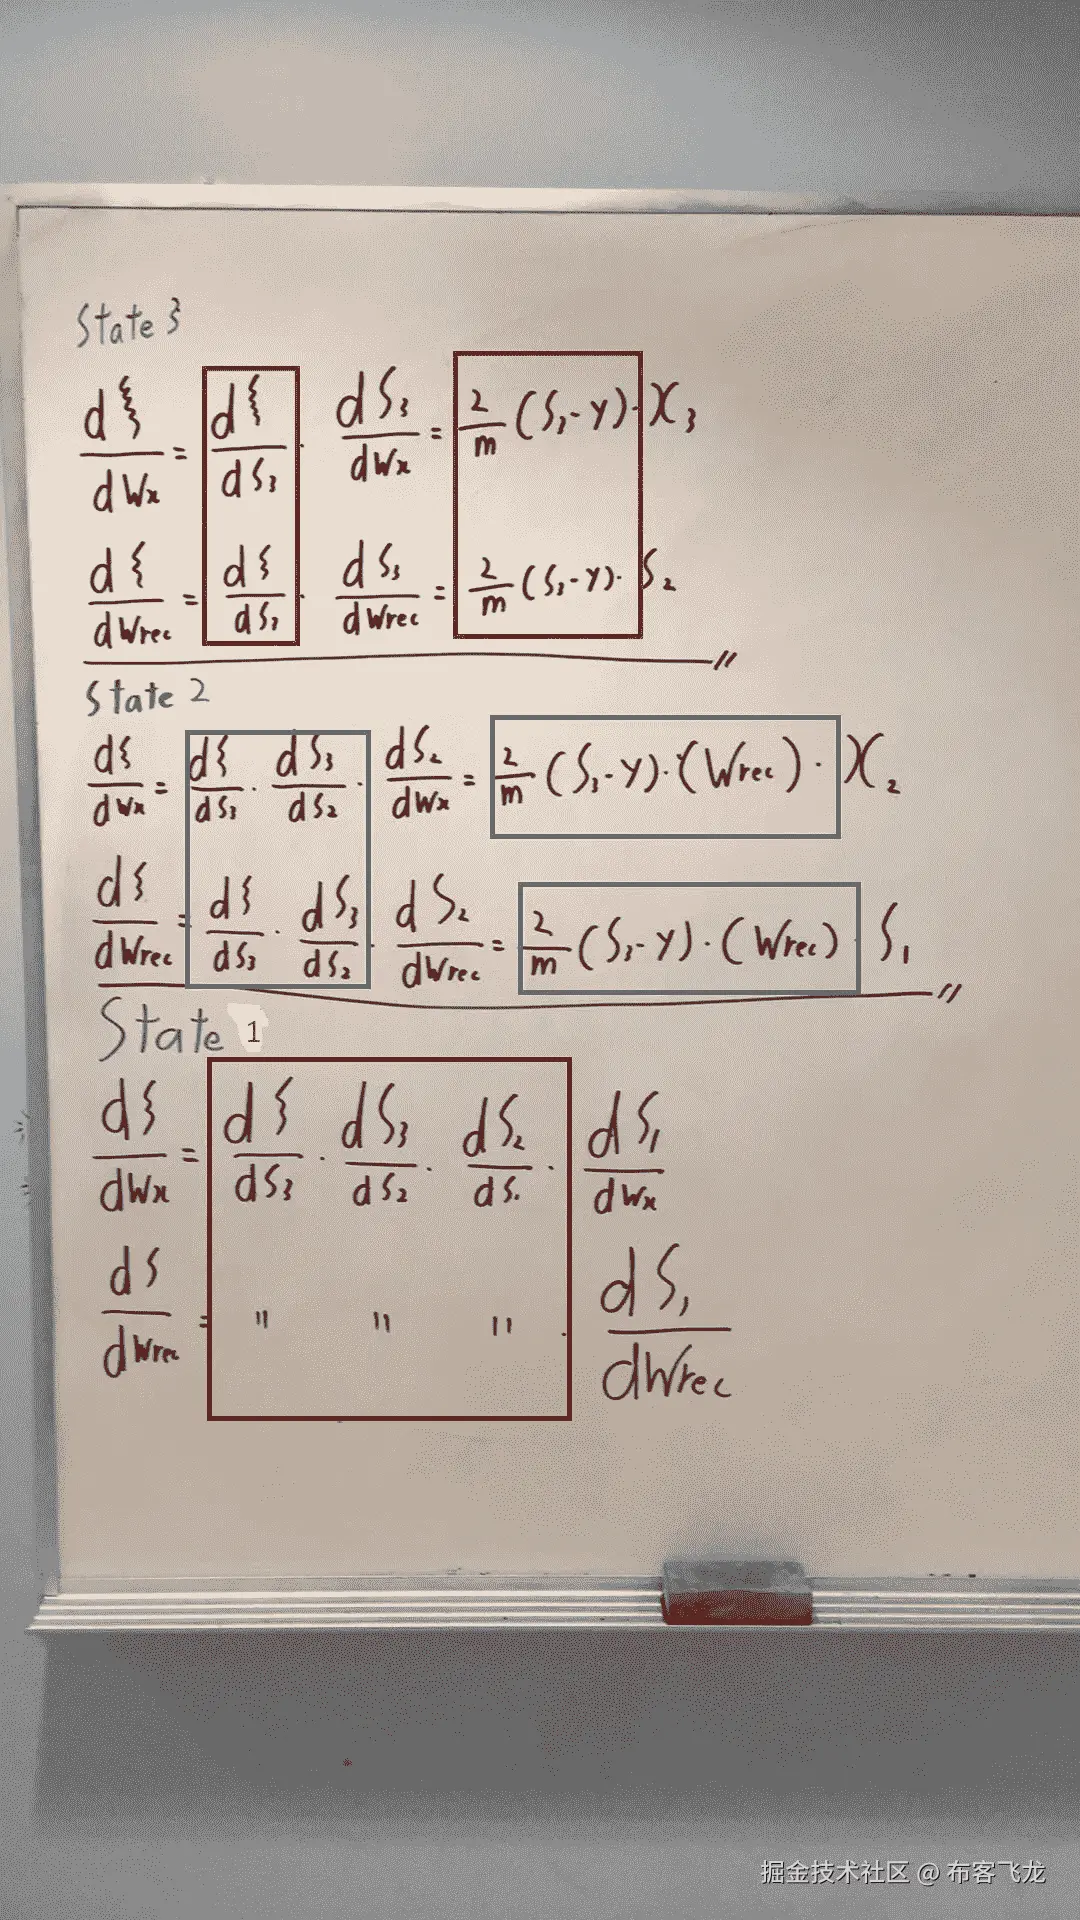 State 3
dξ/dWx = dξ/dS3 · dS3/dWx = 2/m (S3-Y) · X3
dξ/dWrec = dξ/dS3 · dS3/dWrec = 2/m (S3-Y) · S2
State 2
dξ/dWx = dξ/dS3 · dS3/dS2 · dS2/dWx = 2/m (S3-Y) · (Wrec) · X2
dξ/dWrec = dξ/dS3 · dS3/dS2 · dS2/dWrec = 2/m (S3-Y) · (Wrec) S1
State 1
dξ/dWx = dξ/dS3 · dS3/dS2 · dS2/dS1 · dS1/dWx
dS/dWrec = " " " · dS1/dWrec
掘金技术社区 @ 布客飞龙